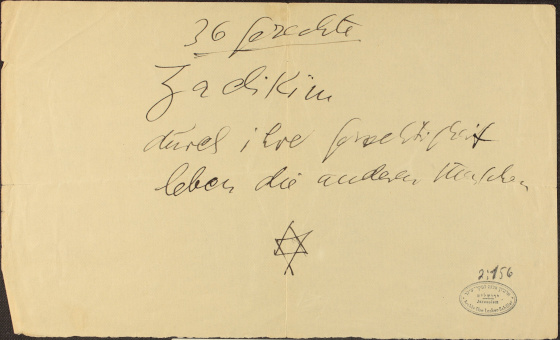 36 Gerechte
Zadikim
durch ihre Gerechtigkeit
leben die anderen Menschen
2:156